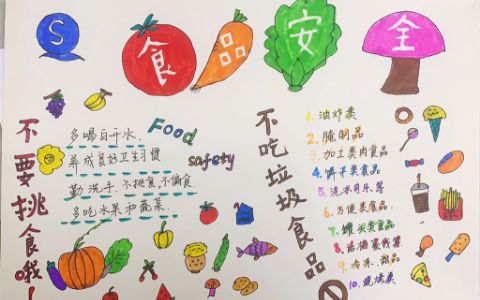 S
食品安全
不要挑食哦!
多喝白开水,
养成良好卫生习惯
勤洗手,不挑食,不偏食,
多吃水果和蔬菜,
Food
safety
不吃垃圾食品
1.油炸类
2.腌制品
3.加工类肉食品
4.饼干类食品
5.汽水可乐类
6.方便类食品
7.罐头类食品
9.冷冻、甜品
10.烧烤类